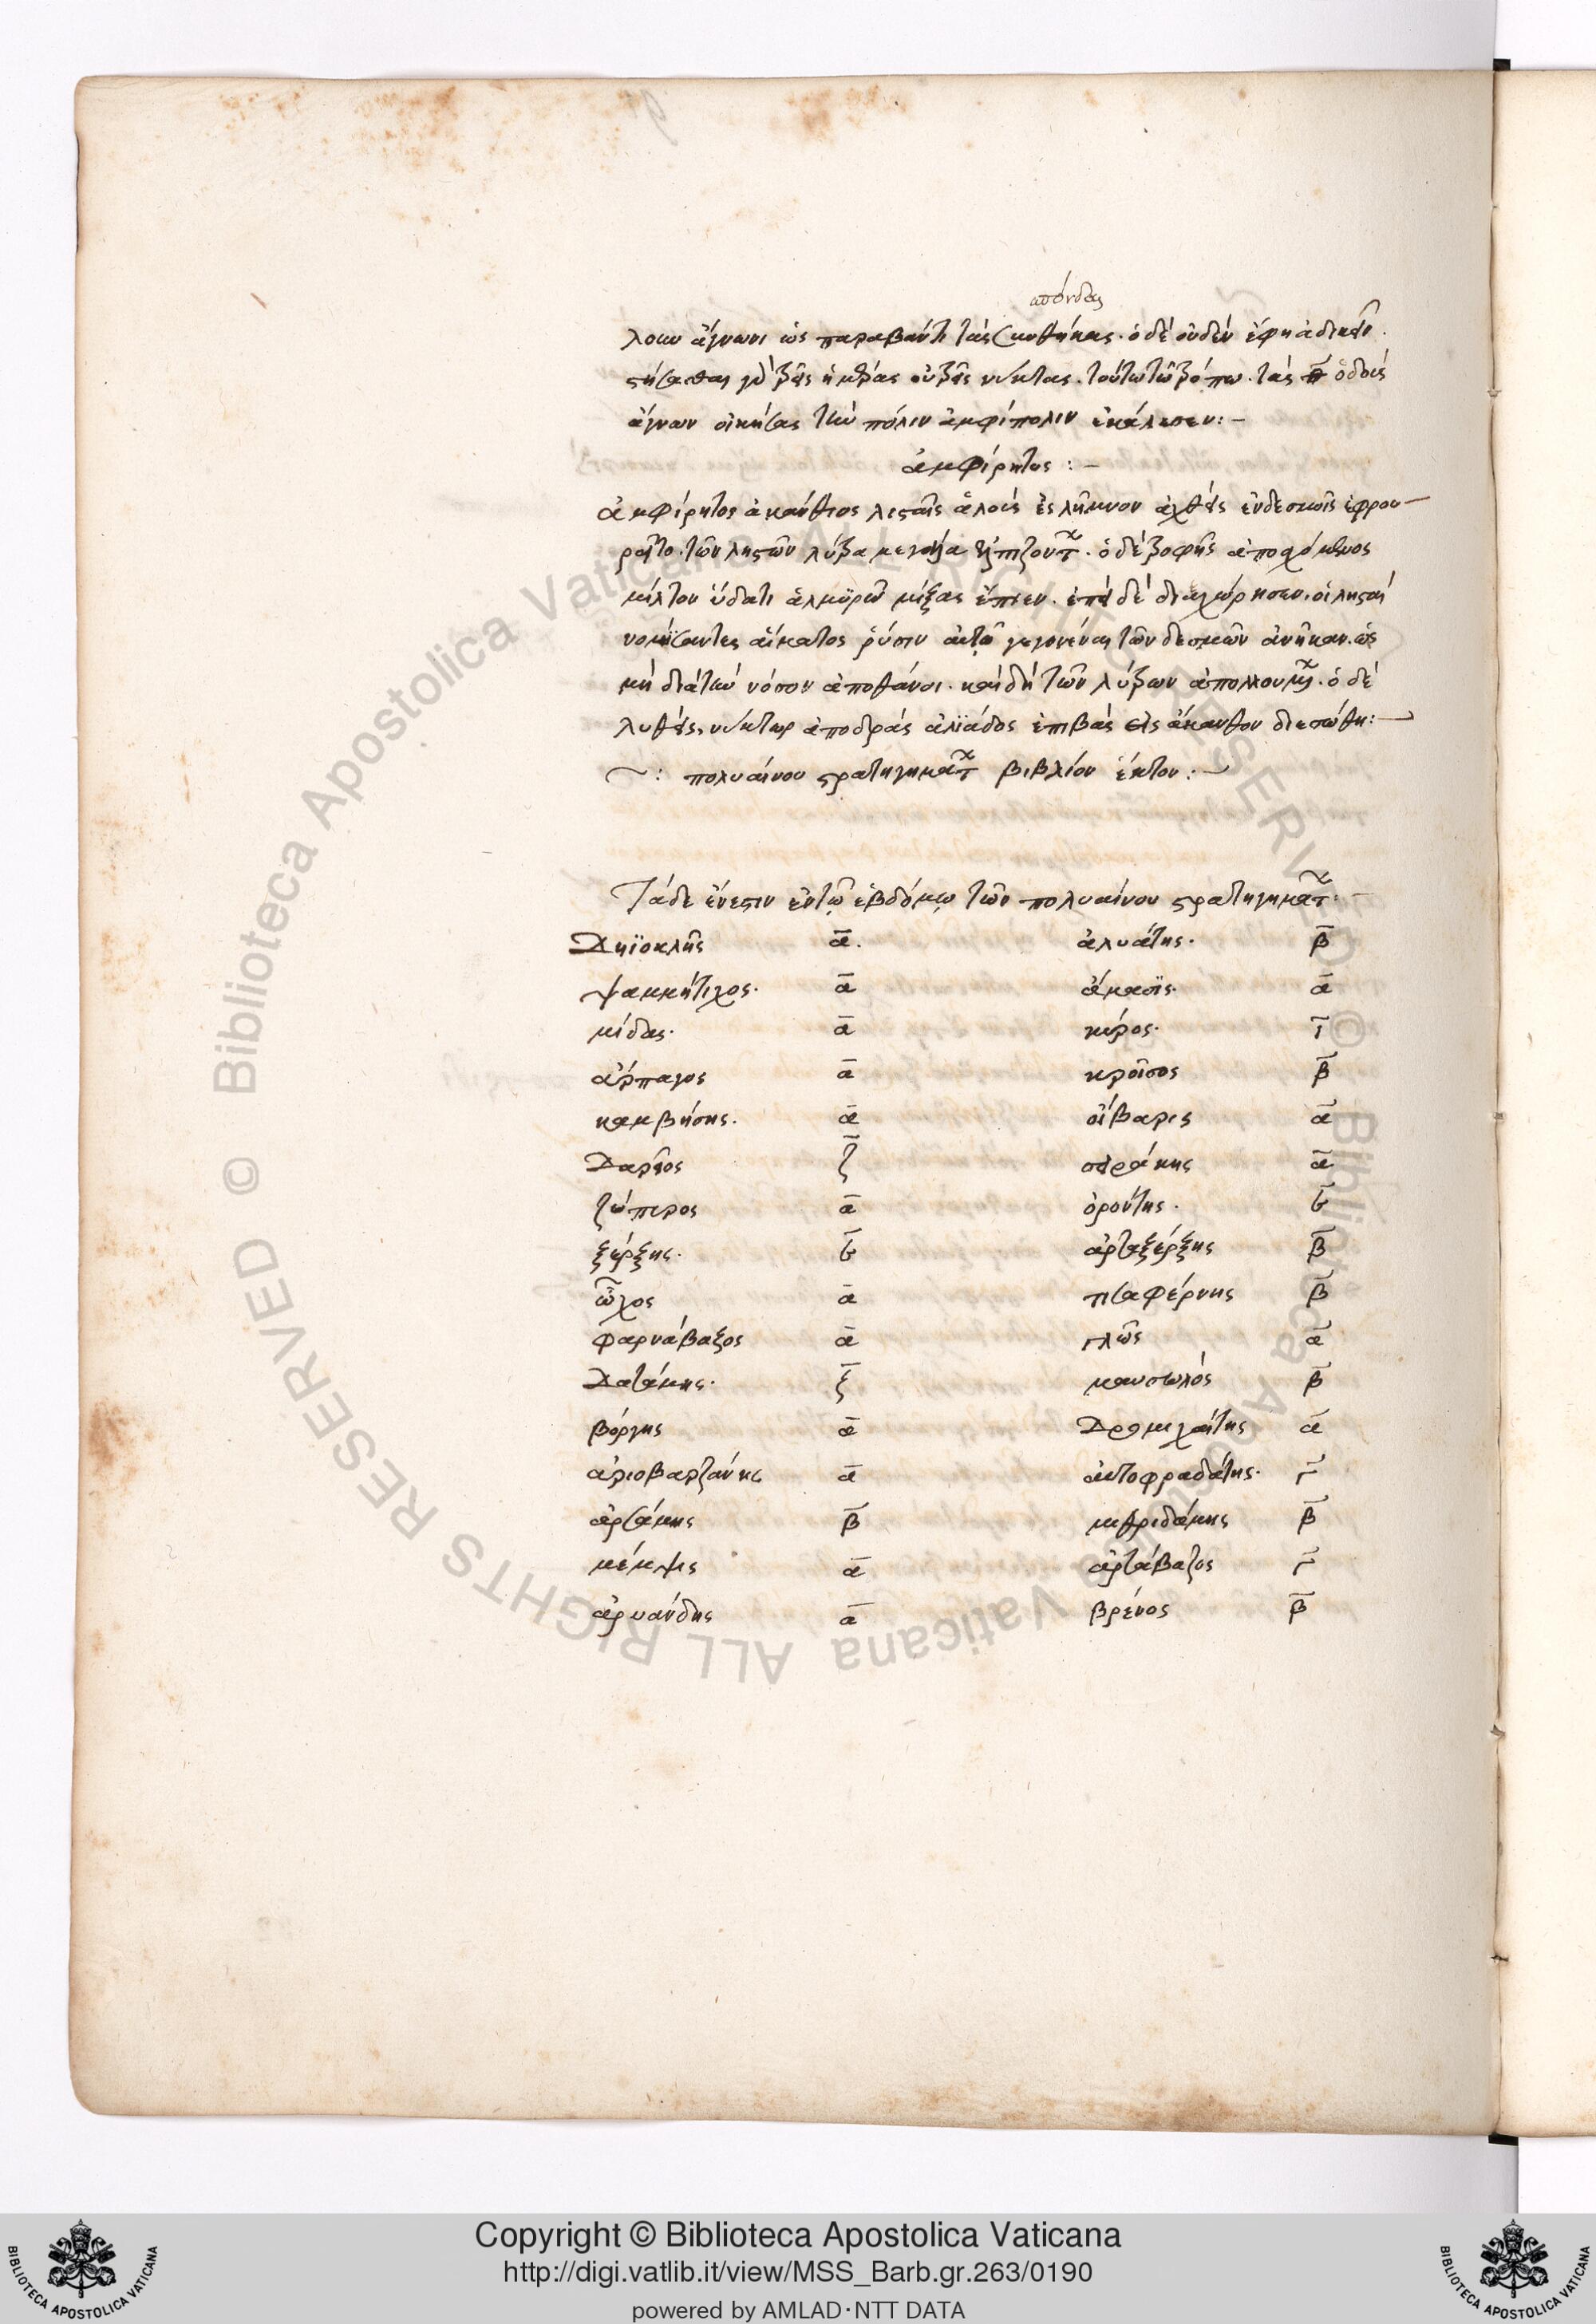 σπόνδας
λουν ἅγνωνι ὡς παραβάντι τὰς συνθήκας. ὁ δὲ οὐδὲν ἔφη ἀδικεῖν.
σπείσασθαι γὰρ τρεῖς ἡμέρας οὐ τρεῖς νύκτας. τούτω τῶ τρόπω. τὰς ὁδοὺς
ἅγνων οἰκήσας τὴν πόλιν ἀμφίπολιν ἐκάλεσεν:–
ἀμφίρητος:–
ἀμφίρητος ἀκάνθιος λῃσταῖς ἁλοὺς ἐς λῆμνον ἀχθεὶς ἐν δεσμοῖς ἐφρου–
ρεῖτο. τῶν λῃστῶν λύτρα μεγάλα ἐλπιζόντων. ὁ δὲ τροφῆς ἀποσχόμενος
μίλτον ὕδατι ἁλμυρῶ μίξας ἔπιεν. ἐπεὶ δὲ διεχώρησεν. οἱ λῃσταὶ
νομίσαντες αἵματος ῥύσιν αὐτῷ γεγονέναι τῶν δεσμῶν ἀνῆκαν. ὡς
μὴ διὰ τὴν νόσον ἀποθάνοι. καὶ δὴ τῶν λύτρων ἀπολλουμένων. ὁ δὲ
λυθεὶς, νύκτωρ ἀποδρὰς ἁλιάδος ἐπιβὰς εἰς ἄκανθον διεσώθη:–
~: πολυαίνου στρατηγημάτων βιβλίον ἕκτον:–
Τάδε ἔνεστιν ἐν τῷ ἑβδόμῳ τῶν πολυαίνου στρατηγημάτων:–
Δηϊοκλῆς ᾱ. ἀλυάτης. β̄
ψαμμήτιχος. ᾱ ἄμασϊς. ᾱ
μίδας. ᾱ κύρος. ῑ
ἅρπαγος ᾱ κροῖσος β̄
καμβήσης. ᾱ οἴβαρις ᾱ
Δαρεῖος ζ̄ σειράκης ᾱ
ζώπυρος ᾱ ὀρόντης. ϛ̄
ξέρξης. ϛ̄ ἀρταξέρξης β̄
ὦχος ᾱ τισαφέρνης β̄
φαρνάβαξος ᾱ γλῶς ᾱ
Δατάμης. ξ̄ μαυσωλός β̄
βόργης ᾱ Δρομιχαίτης ᾱ
ἀριοβαρζάνης ᾱ αὐτοφραδάτης. γ̄
ἀρσάμης β̄ μιθριδάτης β̄
μέμψις ᾱ ἀρτάβαζος γ̄
ἀρυάνδης ᾱ βρένος β̄
© Biblioteca Apostolica Vaticana ALL RIGHTS RESERVED
Copyright © Biblioteca Apostolica Vaticana
http://digi.vatlib.it/view/MSS_Barb.gr.263/0190
powered by AMLAD·NTT DATA
BIBLIOTECA APOSTOLICA VATICANA
BIBLIOTECA APOSTOLICA VATICANA